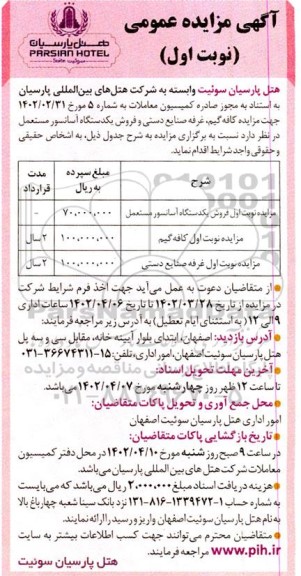 آگهی مزایده عمومی
(نوبت اول)
هتل پارسیان
PARSIAN HOTEL
Suite سوئیت
هتل پارسیان سوئیت وابسته به شرکت هتل‌های بین‌المللی پارسیان
به استناد به مجوز صادره کمیسیون معاملات به شماره ۵ مورخ ۱۴۰۲/۰۲/۳۱
جهت مزایده کافه گیم، غرفه صنایع دستی و فروش یکدستگاه آسانسور مستعمل
در نظر دارد نسبت به برگزاری مزایده به شرح جدول ذیل، به اشخاص حقیقی
و حقوقی واجد شرایط اقدام نماید.
شرح | مبلغ سپرده به ریال | مدت قرارداد
مزایده نوبت اول فروش یکدستگاه آسانسور مستعمل | ۷۰,۰۰۰,۰۰۰ | -
مزایده نوبت اول کافه گیم | ۱۰۰,۰۰۰,۰۰۰ | ۲ سال
مزایده نوبت اول غرفه صنایع دستی | ۱۰۰,۰۰۰,۰۰۰ | ۲ سال
از متقاضیان دعوت به عمل می‌آید جهت اخذ فرم شرایط شرکت
در مزایده از تاریخ ۱۴۰۲/۰۳/۲۸ تا تاریخ ۱۴۰۲/۰۴/۰۶ ساعات اداری
۹ الی ۱۲ (به استثنای ایام تعطیل) به آدرس زیر مراجعه فرمایند:
آدرس بازدید: اصفهان، ابتدای بلوار آیینه خانه، مقابل سی و سه پل
هتل پارسیان سوئیت اصفهان، امور اداری، تلفن: ۱۵-۳۶۶۷۴۳۱۱-۰۳۱
آخرین مهلت تحویل اسناد:
تا ساعت ۱۲ ظهر روز چهارشنبه مورخ ۱۴۰۲/۰۴/۰۷ می‌باشد.
محل جمع آوری و تحویل پاکات متقاضیان:
امور اداری هتل پارسیان سوئیت اصفهان
تاریخ بازگشایی پاکات متقاضیان:
در ساعت ۹ صبح روز شنبه مورخ ۱۴۰۲/۰۴/۱۰ در محل دفتر کمیسیون
معاملات شرکت هتل های بین المللی پارسیان می‌باشد.
هزینه دریافت اسناد مبلغ ۲,۰۰۰,۰۰۰ ریال می‌باشد که می‌بایست
به شماره حساب ۱-۱۳۳۹۴۷۲-۸۱۶-۱۳۱ نزد بانک سینا شعبه چهارباغ بالا
به نام هتل پارسیان سوئیت اصفهان واریز و رسید را ارائه نمایند.
متقاضیان محترم می‌توانند جهت کسب اطلاعات بیشتر به سایت
www.pih.ir مراجعه فرمایند.
هتل پارسیان سوئیت